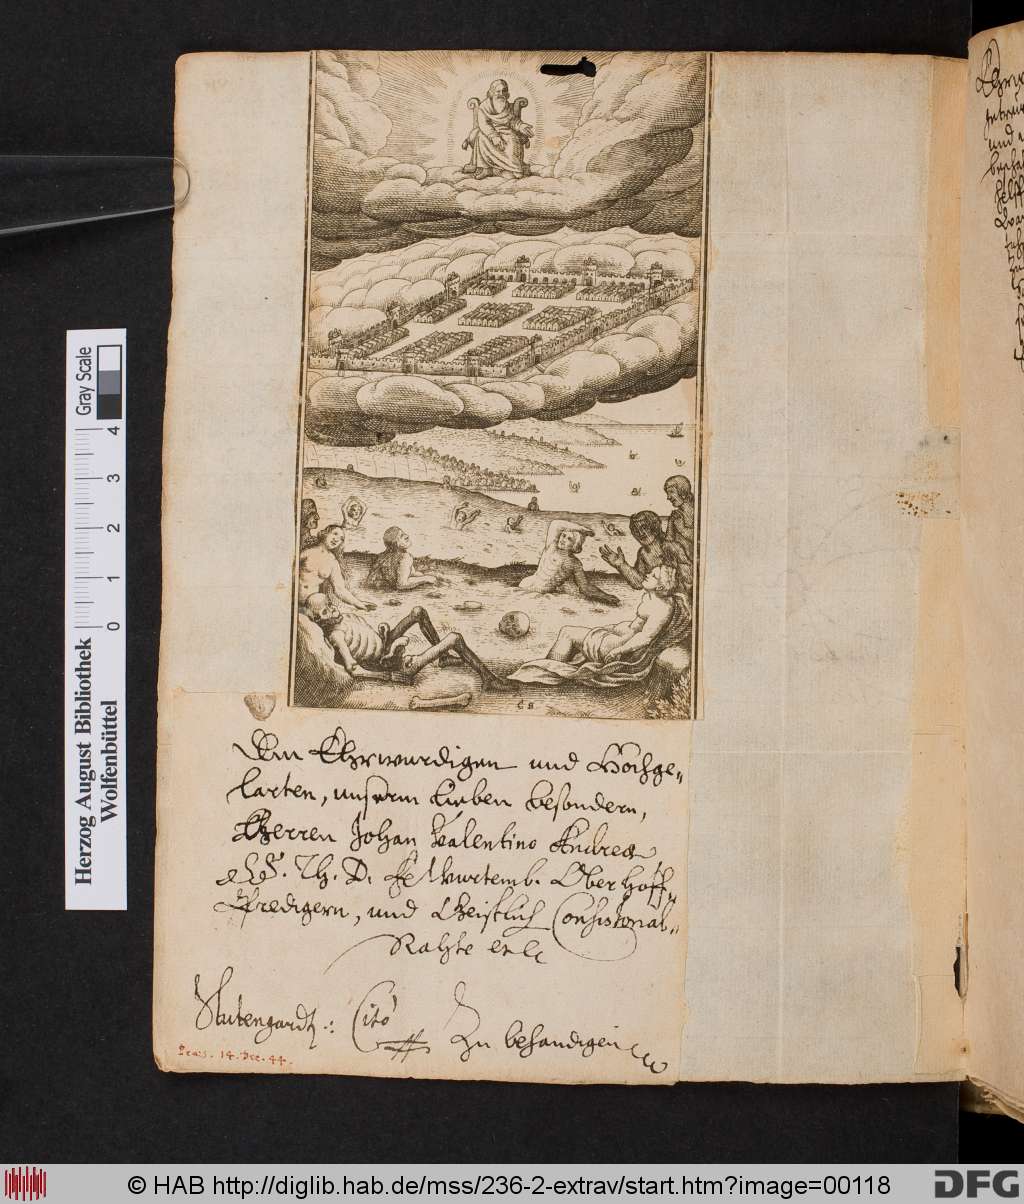 Dem Ehrwurdigen und Hochge-
larten, unserm lieben besondern,
Herren Johan Valentino Andreæ
S. Th. D. Wurtemb. Ober Hoff-
Predigern, und Geistlich Consistorial-
Rahte etc
Stutengardt: Cito Zu behandigen
Præs. 14. Dec. 44.
CB
Gray Scale
0 1 2 3 4
Herzog August Bibliothek
Wolfenbüttel
© HAB http://diglib.hab.de/mss/236-2-extrav/start.htm?image=00118
DFG